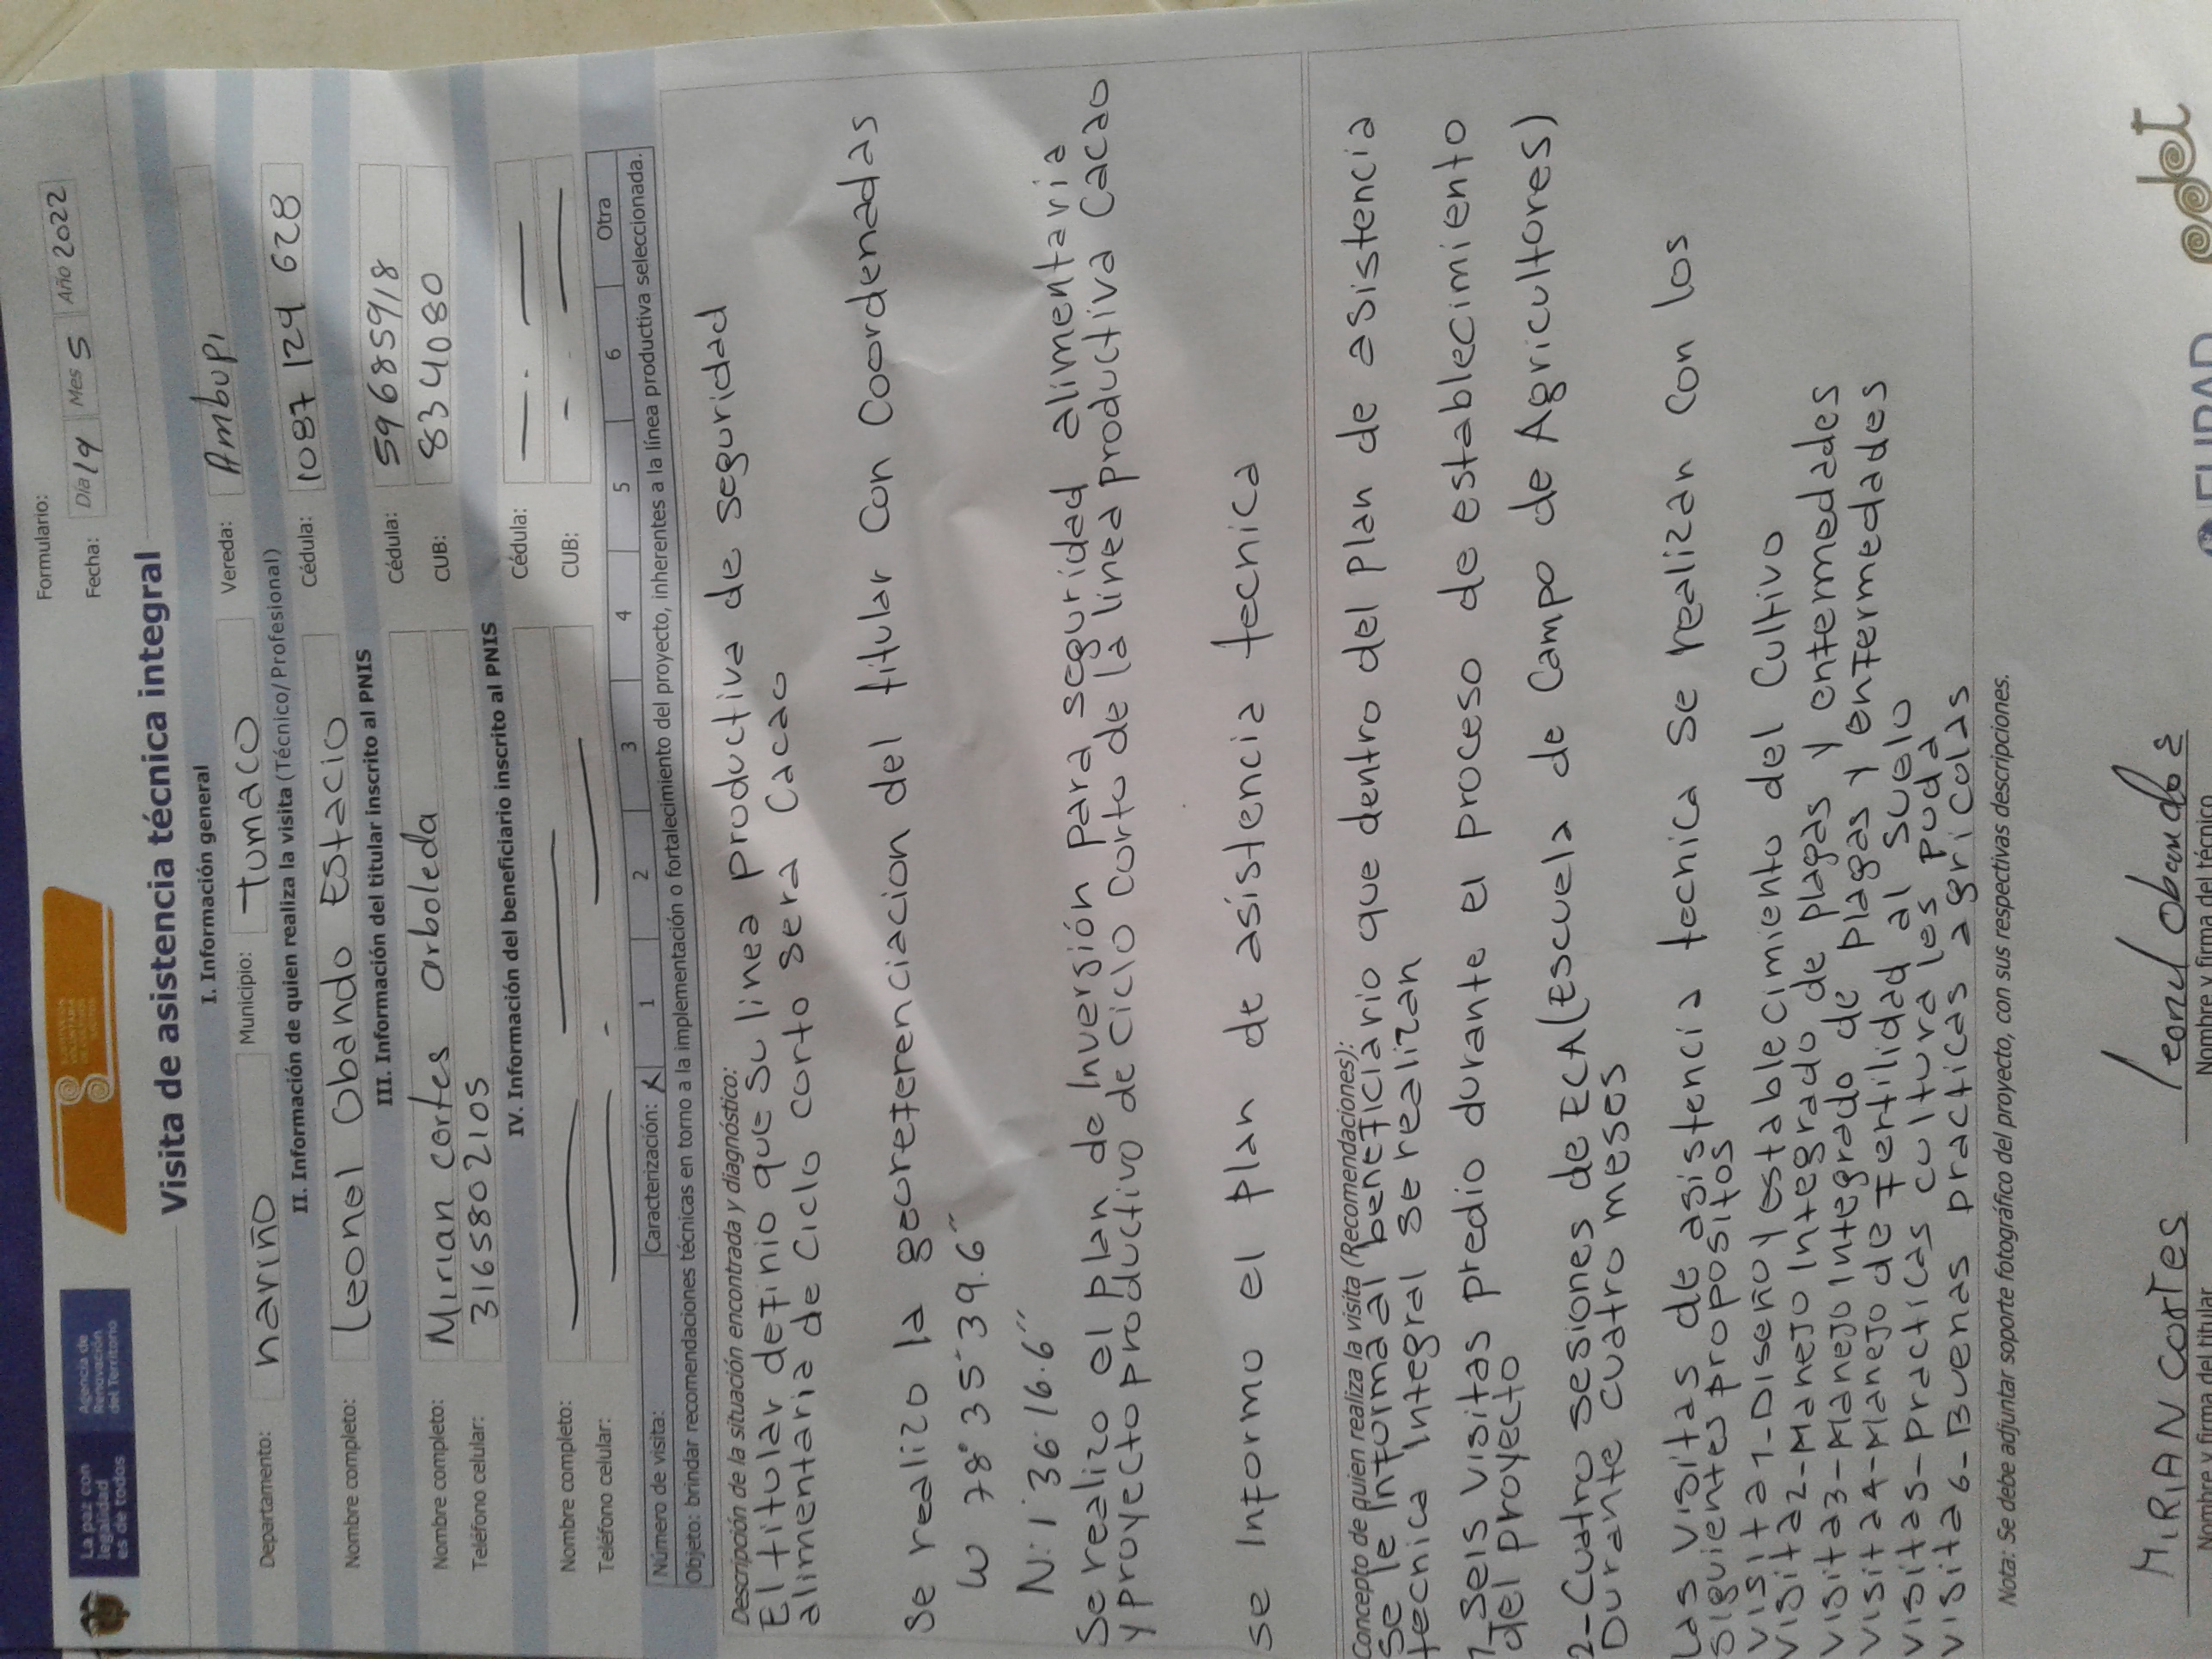 La paz con
legalidad
es de todos
Agencia de
Renovación
del Territorio
Formulario:
Fecha: Día 19 Mes 5 Año 2022
Visita de asistencia técnica integral
I. Información general
Departamento: nariño Municipio: tumaco Vereda: Ambupi
II. Información de quien realiza la visita (Técnico/Profesional)
Nombre completo: leonel obando Estacio Cédula: 1087 124 628
III. Información del titular inscrito al PNIS
Nombre completo: Mirian cortes arboleda Cédula: 59685918
Teléfono celular: 3165802105 CUB: 834080
IV. Información del beneficiario inscrito al PNIS
Nombre completo: Cédula:
Teléfono celular: CUB:
Número de visita: Caracterización: X 1 2 3 4 5 6 Otra
Objeto: brindar recomendaciones técnicas en torno a la implementación o fortalecimiento del proyecto, inherentes a la línea productiva seleccionada.
Descripción de la situación encontrada y diagnóstico:
El titular definio que su linea productiva de seguridad
alimentaria de ciclo corto sera cacao
se realizo la georeferenciacion del titular con coordenadas
W 78° 35' 39.6"
N: 1° 36' 16.6"
Se realizo el plan de Inversión para seguridad alimentaria
y proyecto productivo de ciclo corto de la linea productiva cacao
se Informo el plan de asistencia tecnica
Concepto de quien realiza la visita (Recomendaciones):
Se le Informa al beneficiario que dentro del plan de asistencia
tecnica Integral se realizan
1-Seis visitas predio durante el proceso de establecimiento
del proyecto
2-Cuatro sesiones de ECA(Escuela de Campo de Agricultores)
Durante cuatro meses
Las visitas de asistencia tecnica se realizan con los
siguientes propositos
visita1-Diseño y establecimiento del cultivo
visita2-Manejo Integrado de plagas y enfermedades
visita3-Manejo Integrado de plagas y enfermedades
visita4-Manejo de fertilidad al suelo
visita5-practicas culturales poda
visita6-Buenas practicas agricolas
Nota: Se debe adjuntar soporte fotográfico del proyecto, con sus respectivas descripciones.
MiRiAN CoRTeS leonel obando e
Nombre y firma del titular Nombre y firma del técnico